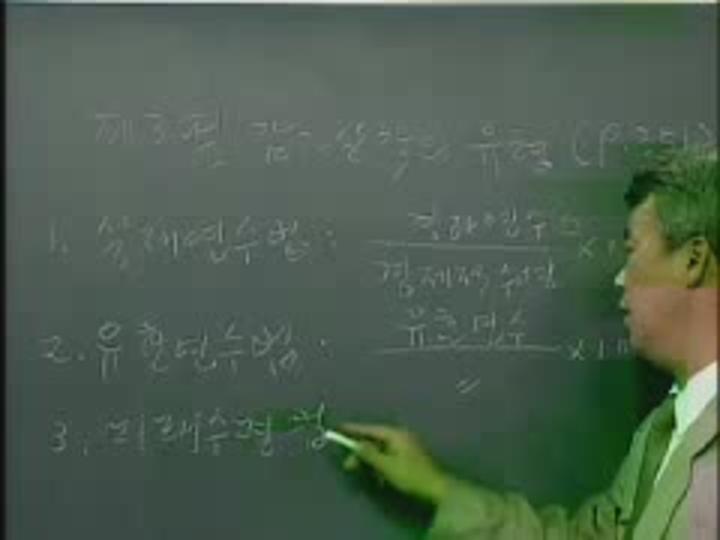 제3편 감가상각의 유형 (P.
1. 실제연수법 : 경과연수 ×1
경제적 수명
2. 유효연수법 : 유효연수 ×10
〃
3. 미래수명법